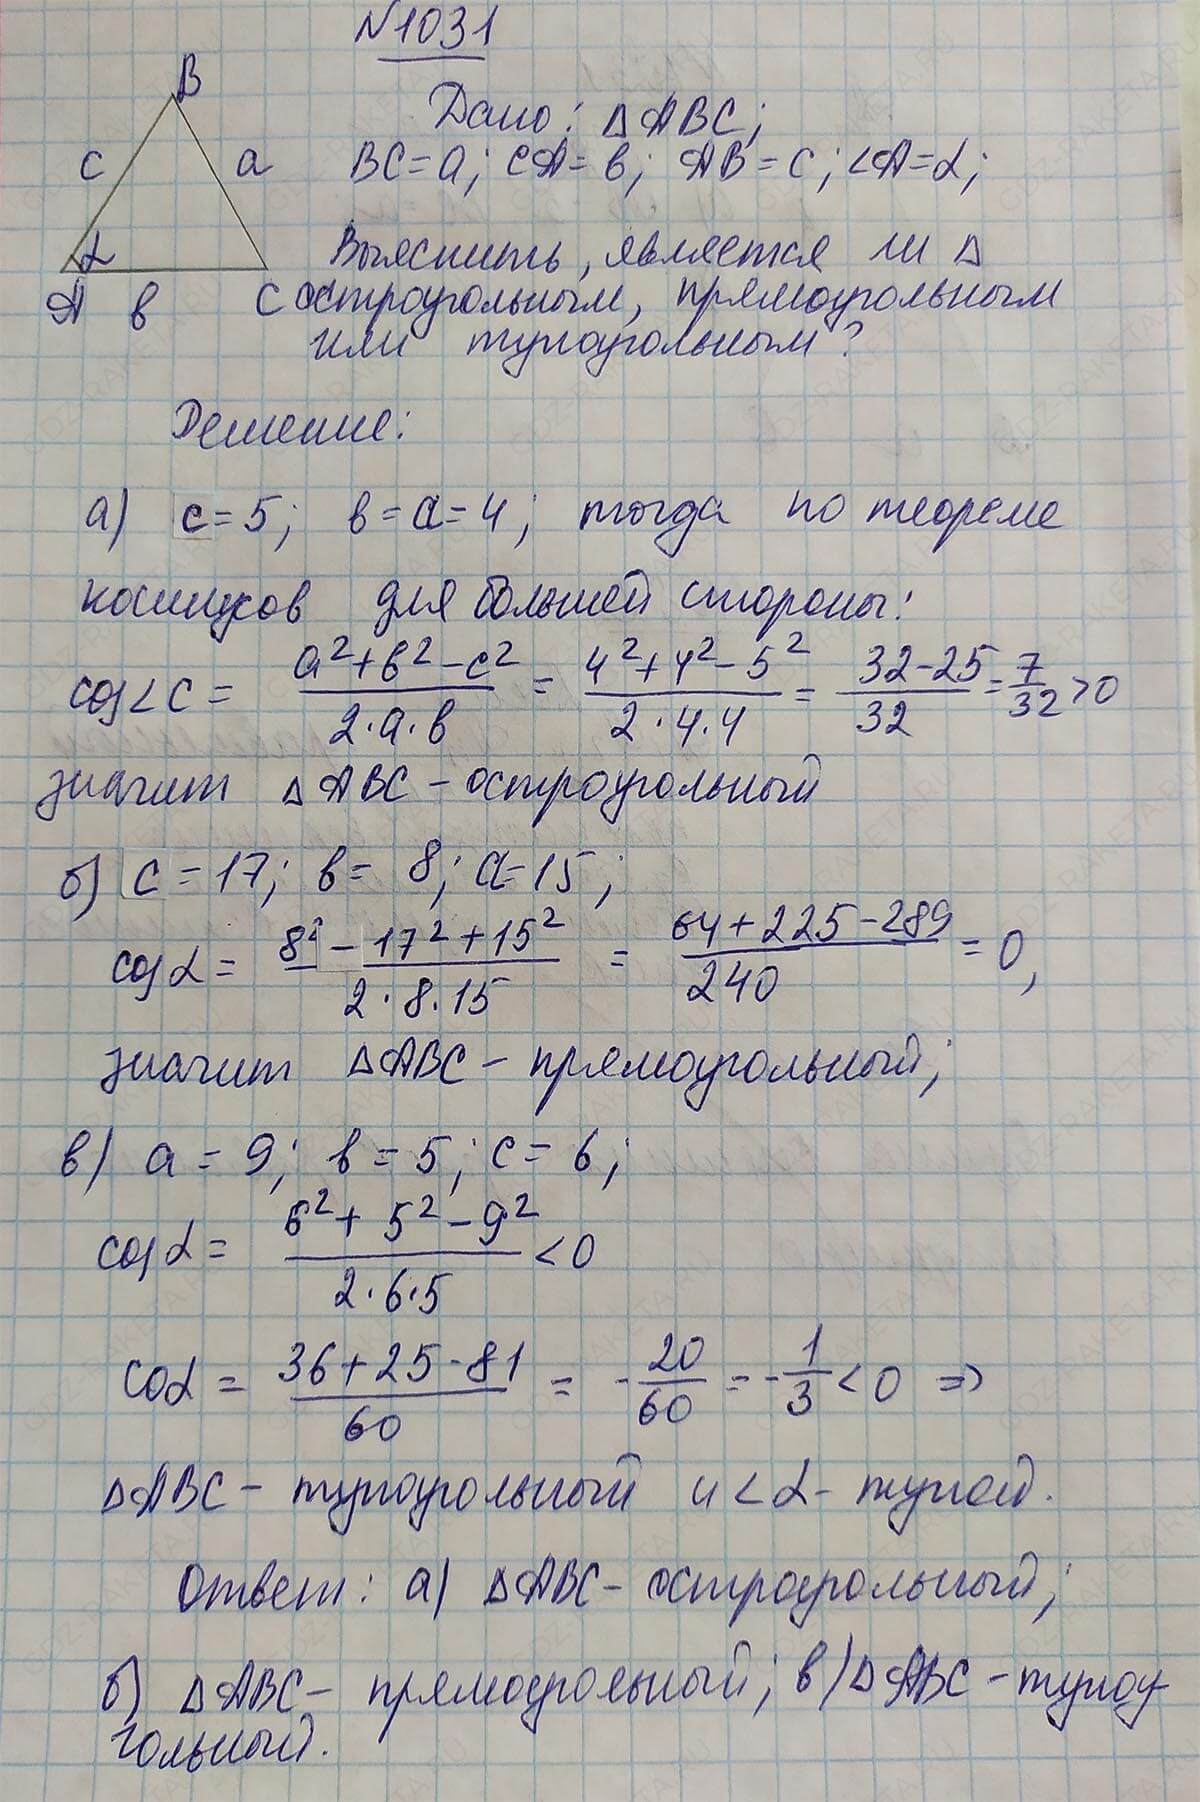 N1031
B
Дано: △ABC;
c a BC=a; CA=в; AB=c; ∠A=α;
α Выяснить, является ли △
A в C остроугольным, прямоугольным
или тупоугольным?
Решение:
а) c=5; в=a=4; тогда по теореме
косинусов для большей стороны:
cos∠C = (a²+в²-c²)/(2·a·в) = (4²+4²-5²)/(2·4·4) = (32-25)/32 = 7/32 >0
значит △ABC - остроугольный
б) c=17; в= 8; a=15;
cosα = (8²-17²+15²)/(2·8·15) = (64+225-289)/240 = 0,
значит △ABC - прямоугольный;
в) a=9; в=5; c=6;
cosα = (6²+5²-9²)/(2·6·5) <0
cosα = (36+25-81)/60 = -20/60 = -1/3 <0 =>
△ABC - тупоугольный и ∠α - тупой.
Ответ: а) △ABC - остроугольный;
б) △ABC - прямоугольный; в) △ABC - тупоу
гольный.